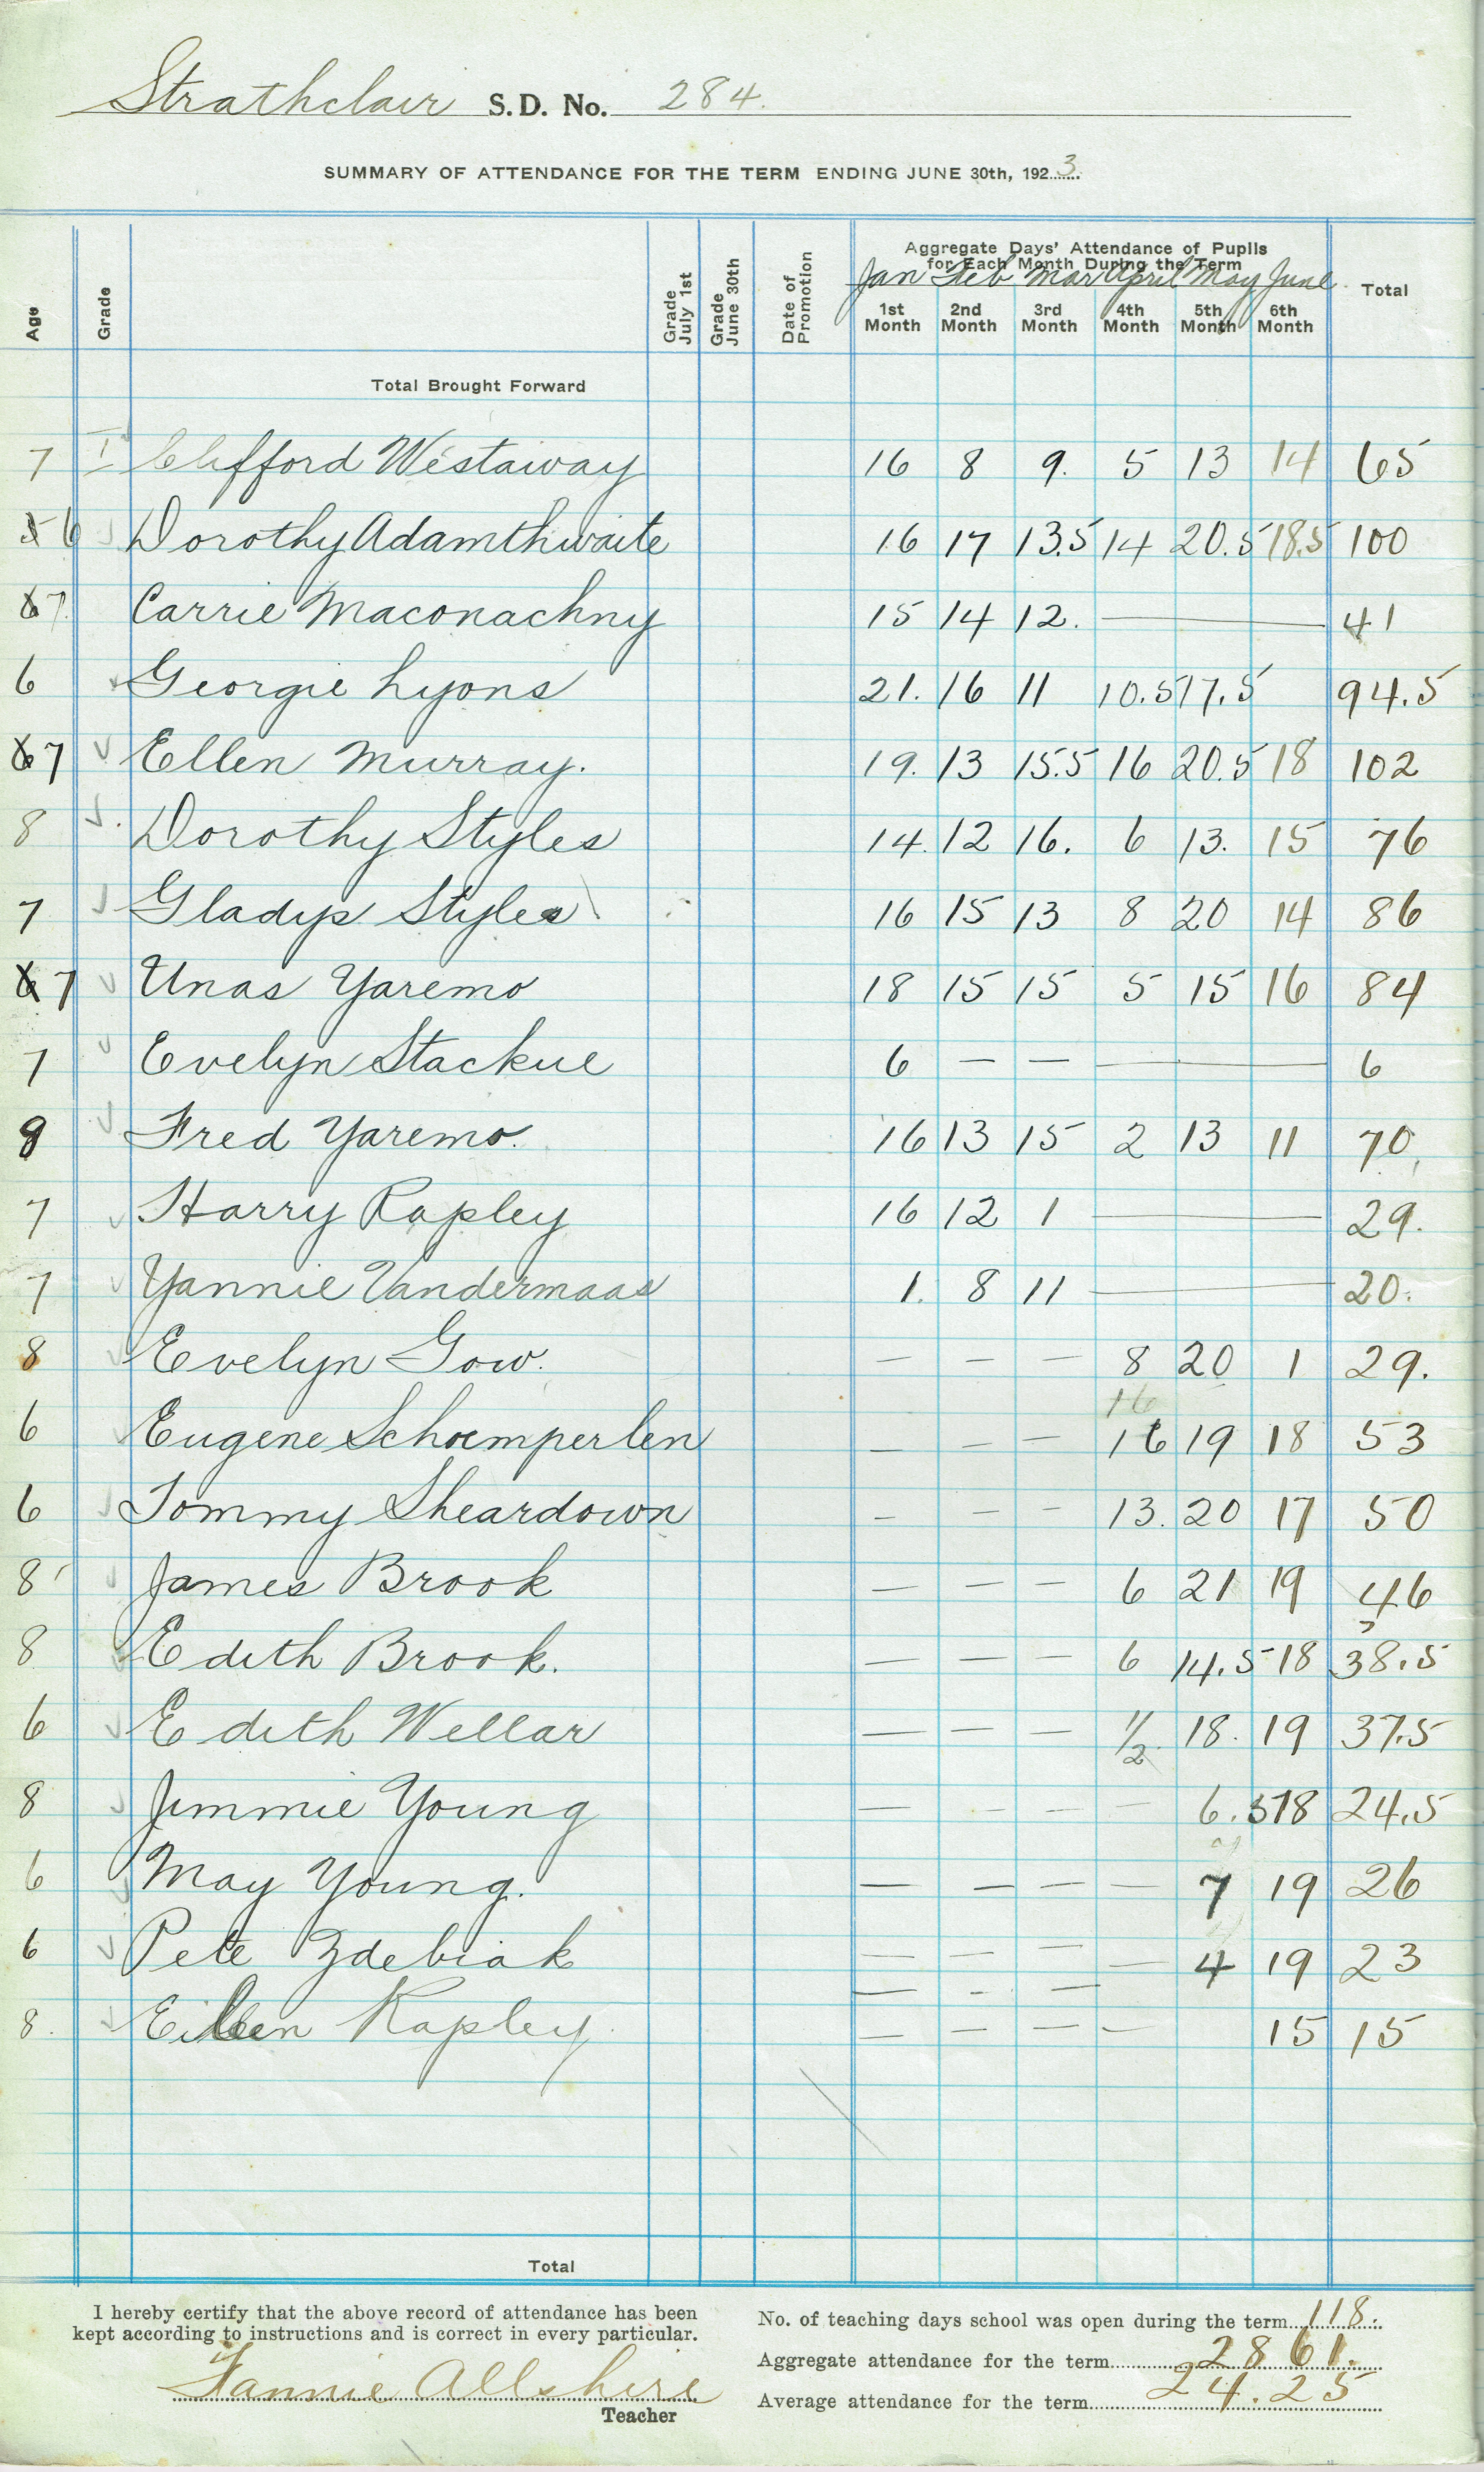 Strathclair S.D. No. 284.
SUMMARY OF ATTENDANCE FOR THE TERM ENDING JUNE 30th, 1923
Age Grade Grade July 1st Grade June 30th Date of Promotion Aggregate Days' Attendance of Pupils for Each Month During the Term Total
Jan Feb Mar April May June
1st Month 2nd Month 3rd Month 4th Month 5th Month 6th Month
Total Brought Forward
7 I Clifford Westaway 16 8 9. 5 13 14 65
5 6 Dorothy Adamthwaite 16 17 13.5 14 20.5 18.5 100
6 7. Carrie Maconachny 15 14 12. — 41
6 Georgie Lyons 21. 16 11 10.5 17.5 94.5
6 7 Ellen Murray. 19. 13 15.5 16 20.5 18 102
8 Dorothy Styles 14. 12 16. 6 13. 15 76
7 Gladys Styles 16 15 13 8 20 14 86
6 7 Unas Yaremo 18 15 15 5 15 16 84
7 Evelyn Stackue 6 — — — 6
8 Fred Yaremo. 16 13 15 2 13 11 70
7 Harry Rapley 16 12 1 — 29.
7 Yannie Vandermaas 1. 8 11 — 20.
8 Evelyn Gow. — — — 8 20 1 29.
16
6 Eugene Schoemperlen — — — 16 19 18 53
6 Tommy Sheardown — — — 13. 20 17 50
8 James Brook — — — 6 21 19 46
8 Edith Brook. — — — 6 14.5 18 38.5
6 Edith Wellar — — — 1/2 18. 19 37.5
8 Jimmie Young — — — — 6.5 18 24.5
6 May Young. — — — — 7 19 26
6 Pete Zdebiak — — — — 4 19 23
8. Eileen Rapley. — — — — 15 15
Total
I hereby certify that the above record of attendance has been
kept according to instructions and is correct in every particular.
Fannie Allshire
Teacher
No. of teaching days school was open during the term 118.
Aggregate attendance for the term 2861.
Average attendance for the term 24.25